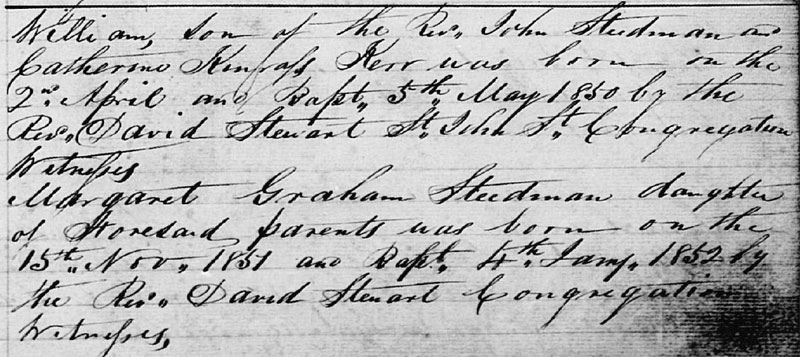 William, son of the Rev. John Steedman and
Catherine Kinross Kerr was born on the
2nd April and Bapt. 5th May 1850 by the
Rev. David Stewart St. John St. Congregation
Witnesses
Margaret Graham Steedman daughter
of Foresaid parents was born on the
15th Nov. 1851 and Bapt. 4th Jany. 1852 by
the Rev. David Stewart Congregation
Witnesses,